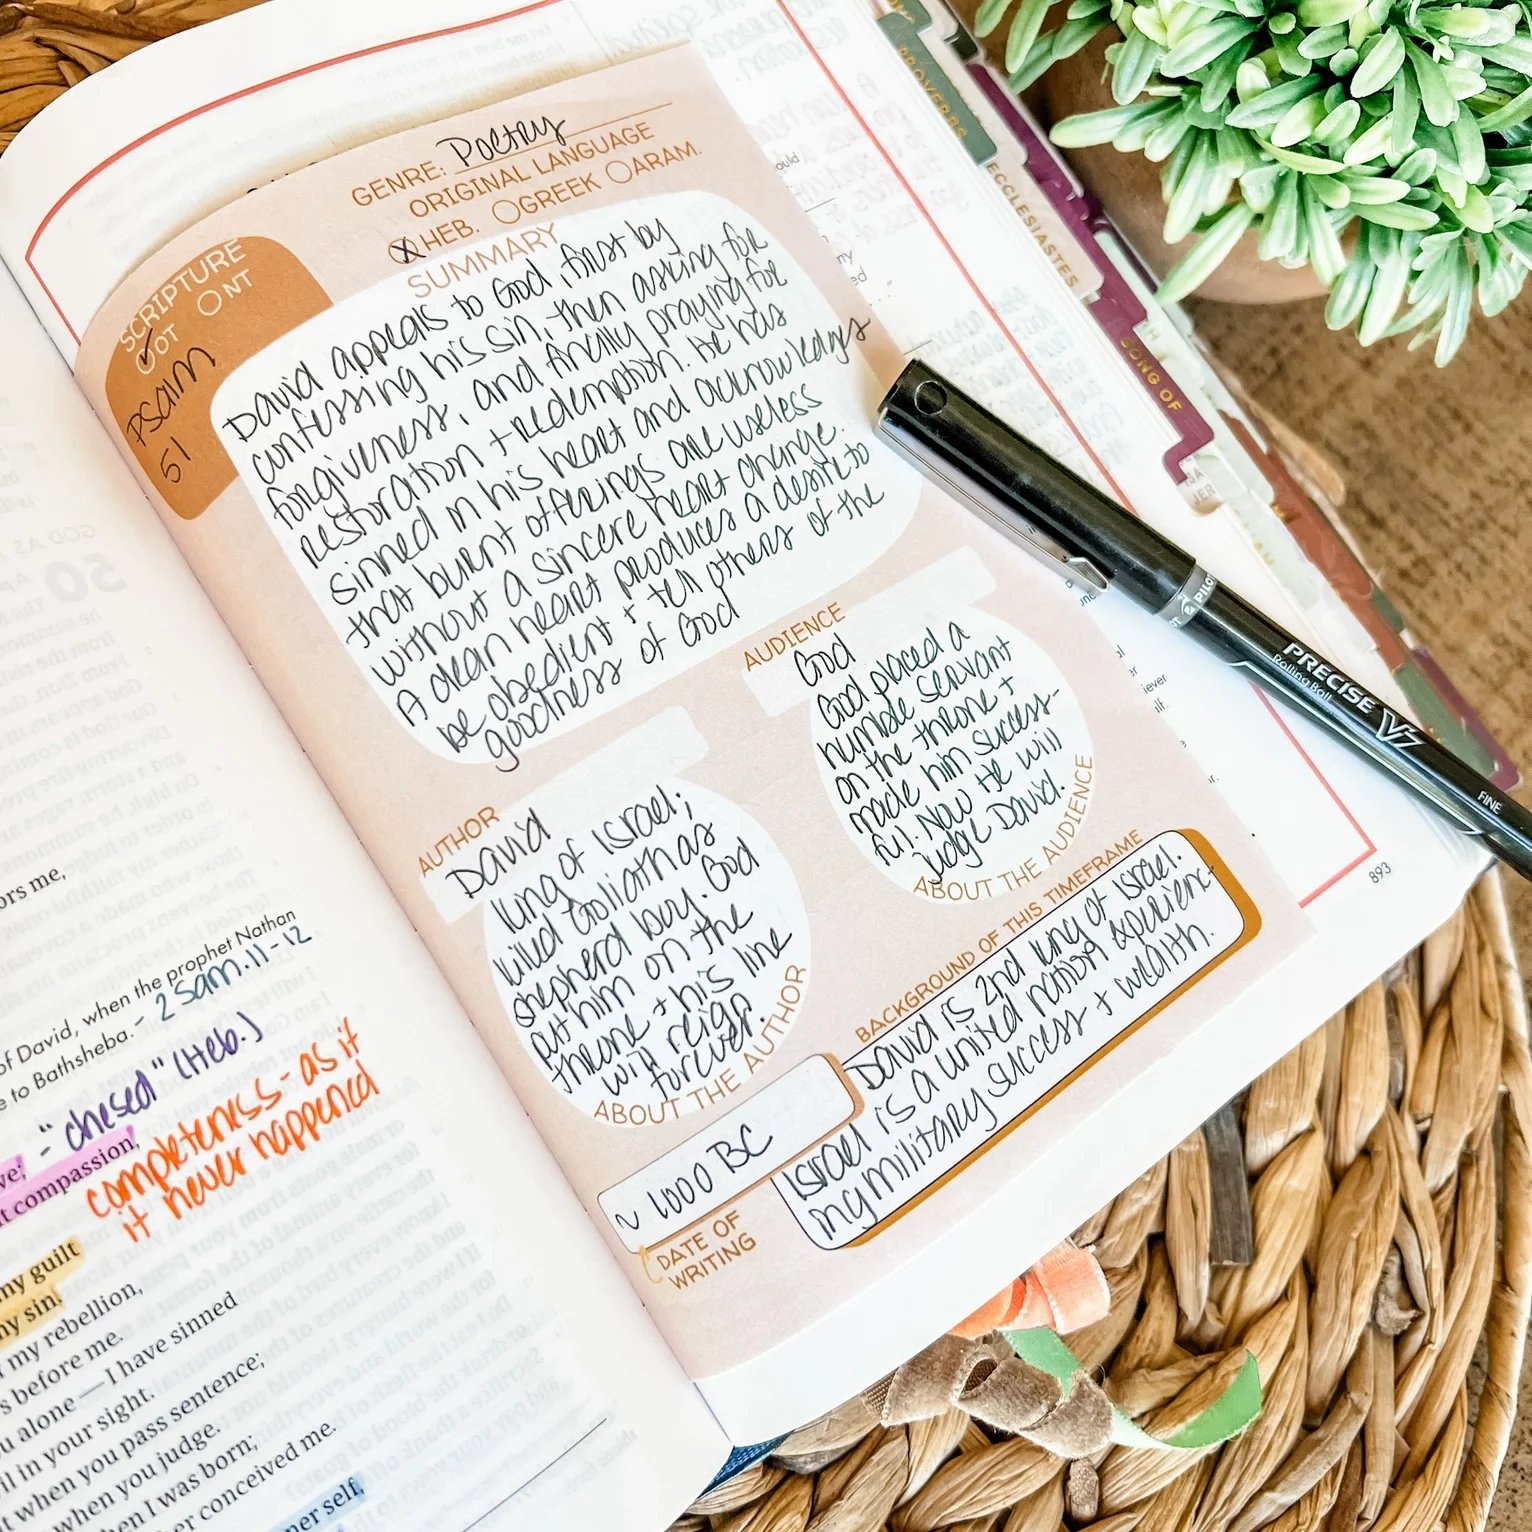 GENRE: Poetry
ORIGINAL LANGUAGE
HEB. GREEK ARAM.
SCRIPTURE
OT NT
Psalm
51
SUMMARY
David appeals to God, first by
confessing his sin, then asking for
forgiveness, and finally praying for
restoration + redemption. He has
sinned in his heart and acknowledges
that burnt offerings are useless
without a sincere heart change.
A clean heart produces a desire to
be obedient + tell others of the
goodness of God
AUDIENCE
God
God placed a
humble servant
on the throne +
made him success-
ful. Now He will
judge David.
ABOUT THE AUDIENCE
AUTHOR
David
King of Israel;
killed Goliath as
shepherd boy. God
put him on the
throne + his line
will reign
forever.
ABOUT THE AUTHOR
BACKGROUND OF THIS TIMEFRAME
David is 2nd king of Israel.
Israel is a united nation experienc-
ing military success + wealth.
~ 1000 BC
DATE OF
WRITING
893
PROVERBS
ECCLESIASTES
SONG OF
PILOT
PRECISE V7
Rolling Ball
FINE
ors me,
of David, when the prophet Nathan
e to Bathsheba. - 2 Sam. 11-12
- "chesed" (Heb.)
ve;
t compassion,
completeness - as if
it never happened
my guilt
my sin.
my rebellion,
s before me.
u alone — I have sinned
il in your sight.
t when you pass sentence;
when you judge.
hen I was born;
her conceived me.
ner self,